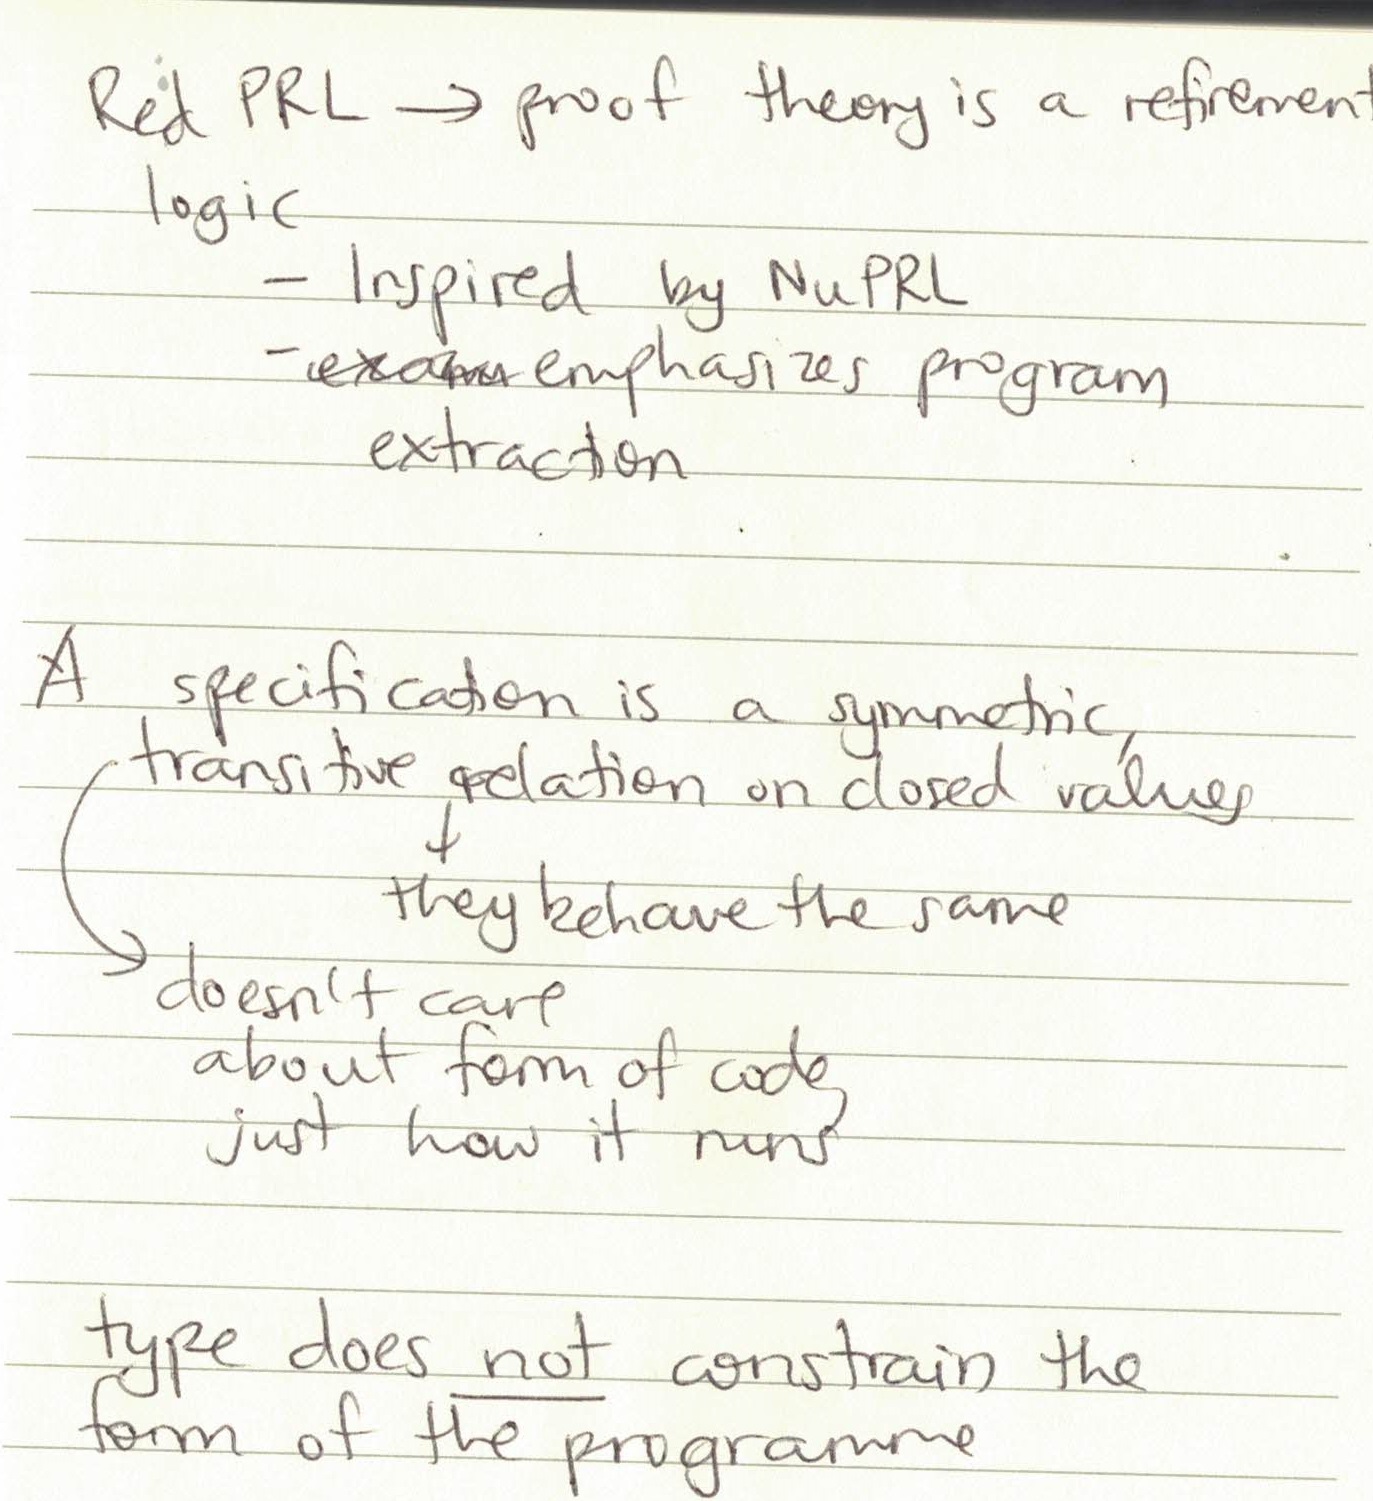 Red PRL → proof theory is a refirement
logic
- Inspired by NuPRL
- emphasizes program
extraction
A specification is a symmetric,
transitive relation on closed values
↓
they behave the same
doesn't care
about form of code,
just how it runs
type does not constrain the
form of the programme